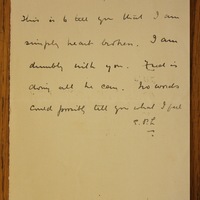 This is to tell you that I am
simply heart broken. I am
dumbly with you. Fred is
doing all he can. No words
could possibly tell you what I feel